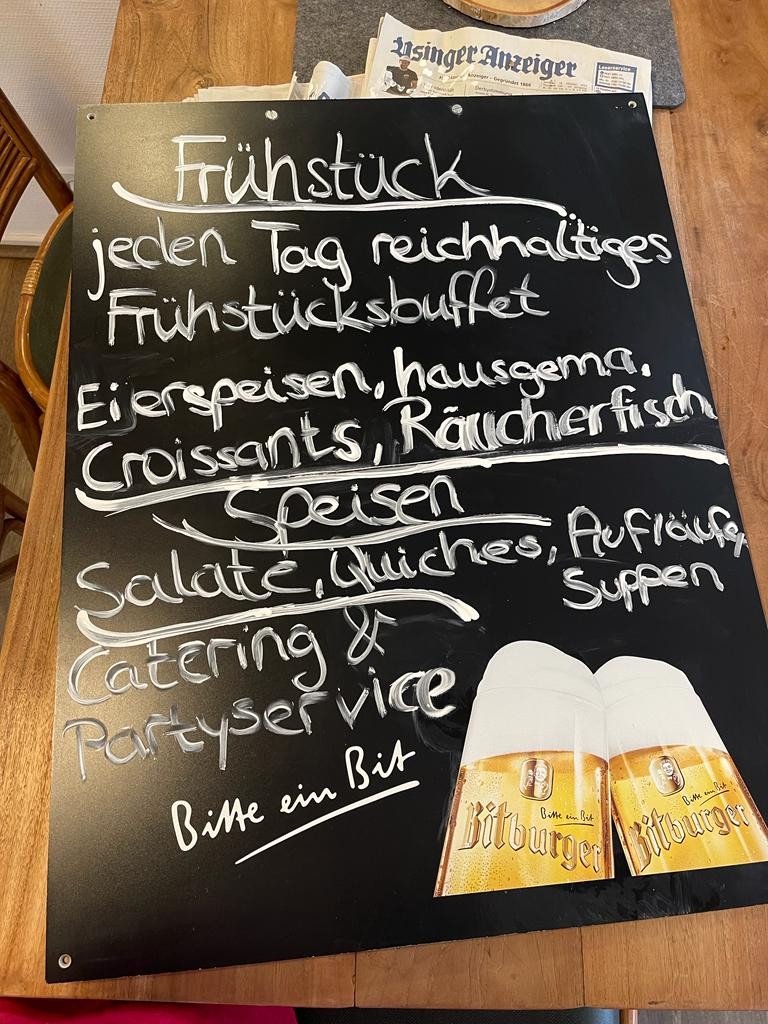 Usinger Anzeiger
Anzeiger - Gegründet 1866
Leserservice
Frühstück
jeden Tag reichhaltiges
Frühstücksbuffet
Eierspeisen, hausgema.
Croissants, Räucherfisch
Speisen
Salate, Quiches, Aufläufe,
Suppen
Catering &
Partyservice
Bitte ein Bit
Bitte ein Bit
Bitburger
Bitte ein Bit
Bitburger